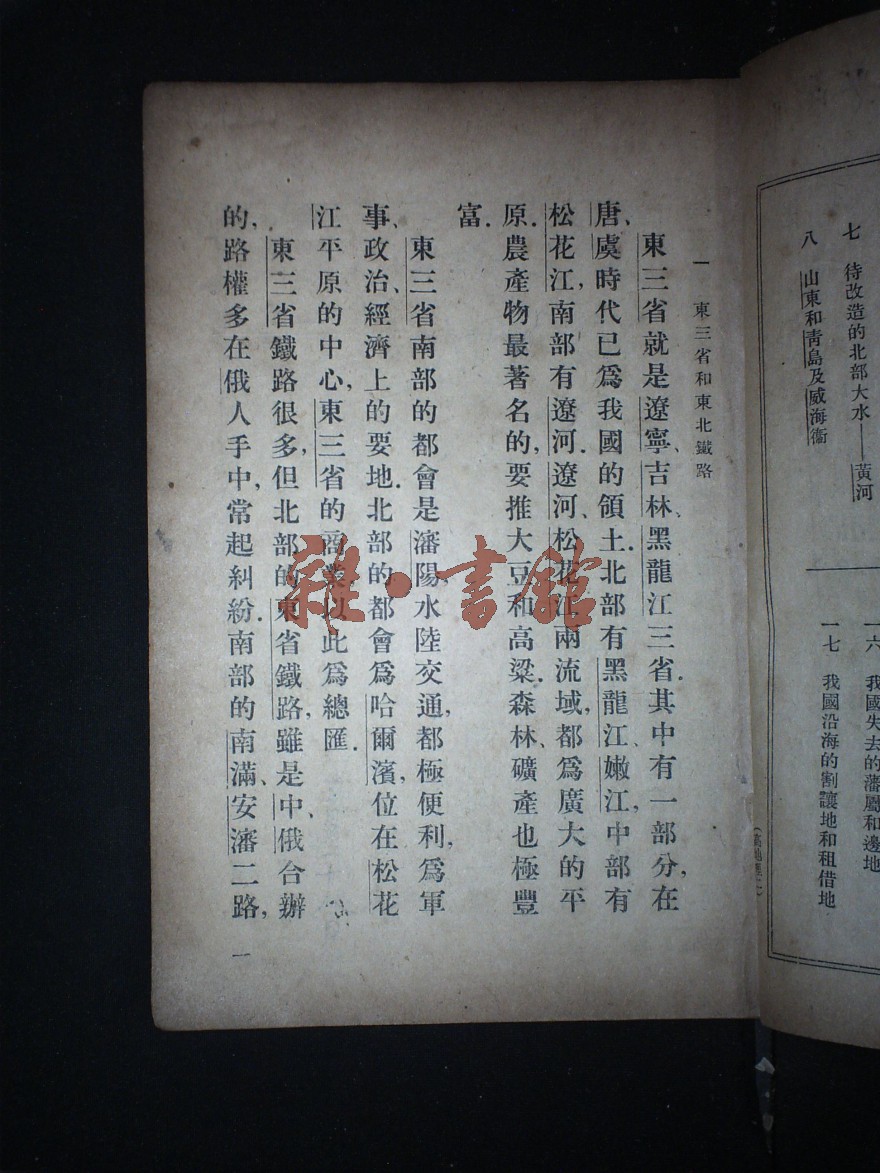 七 待改造的北部大水——黃河
八 山東和靑島及威海衞
一六 我國失去的藩屬和邊地
一七 我國沿海的割讓地和租借地
一 東三省和東北鐵路
東三省就是遼寧、吉林、黑龍江三省.其中有一部分,在
唐、虞時代已爲我國的領土.北部有黑龍江、嫩江,中部有
松花江,南部有遼河.遼河、松花江兩流域,都爲廣大的平
原.農產物最著名的,要推大豆和高粱.森林、礦產也極豐
富.
東三省南部的都會是瀋陽,水陸交通,都極便利,爲軍
事、政治、經濟上的要地.北部的都會爲哈爾濱,位在松花
江平原的中心,東三省的商業,以此爲總匯.
東三省鐵路很多,但北部的東省鐵路,雖是中、俄合辦
的,路權多在俄人手中,常起糾紛.南部的南滿、安瀋二路,
一
雜·書館